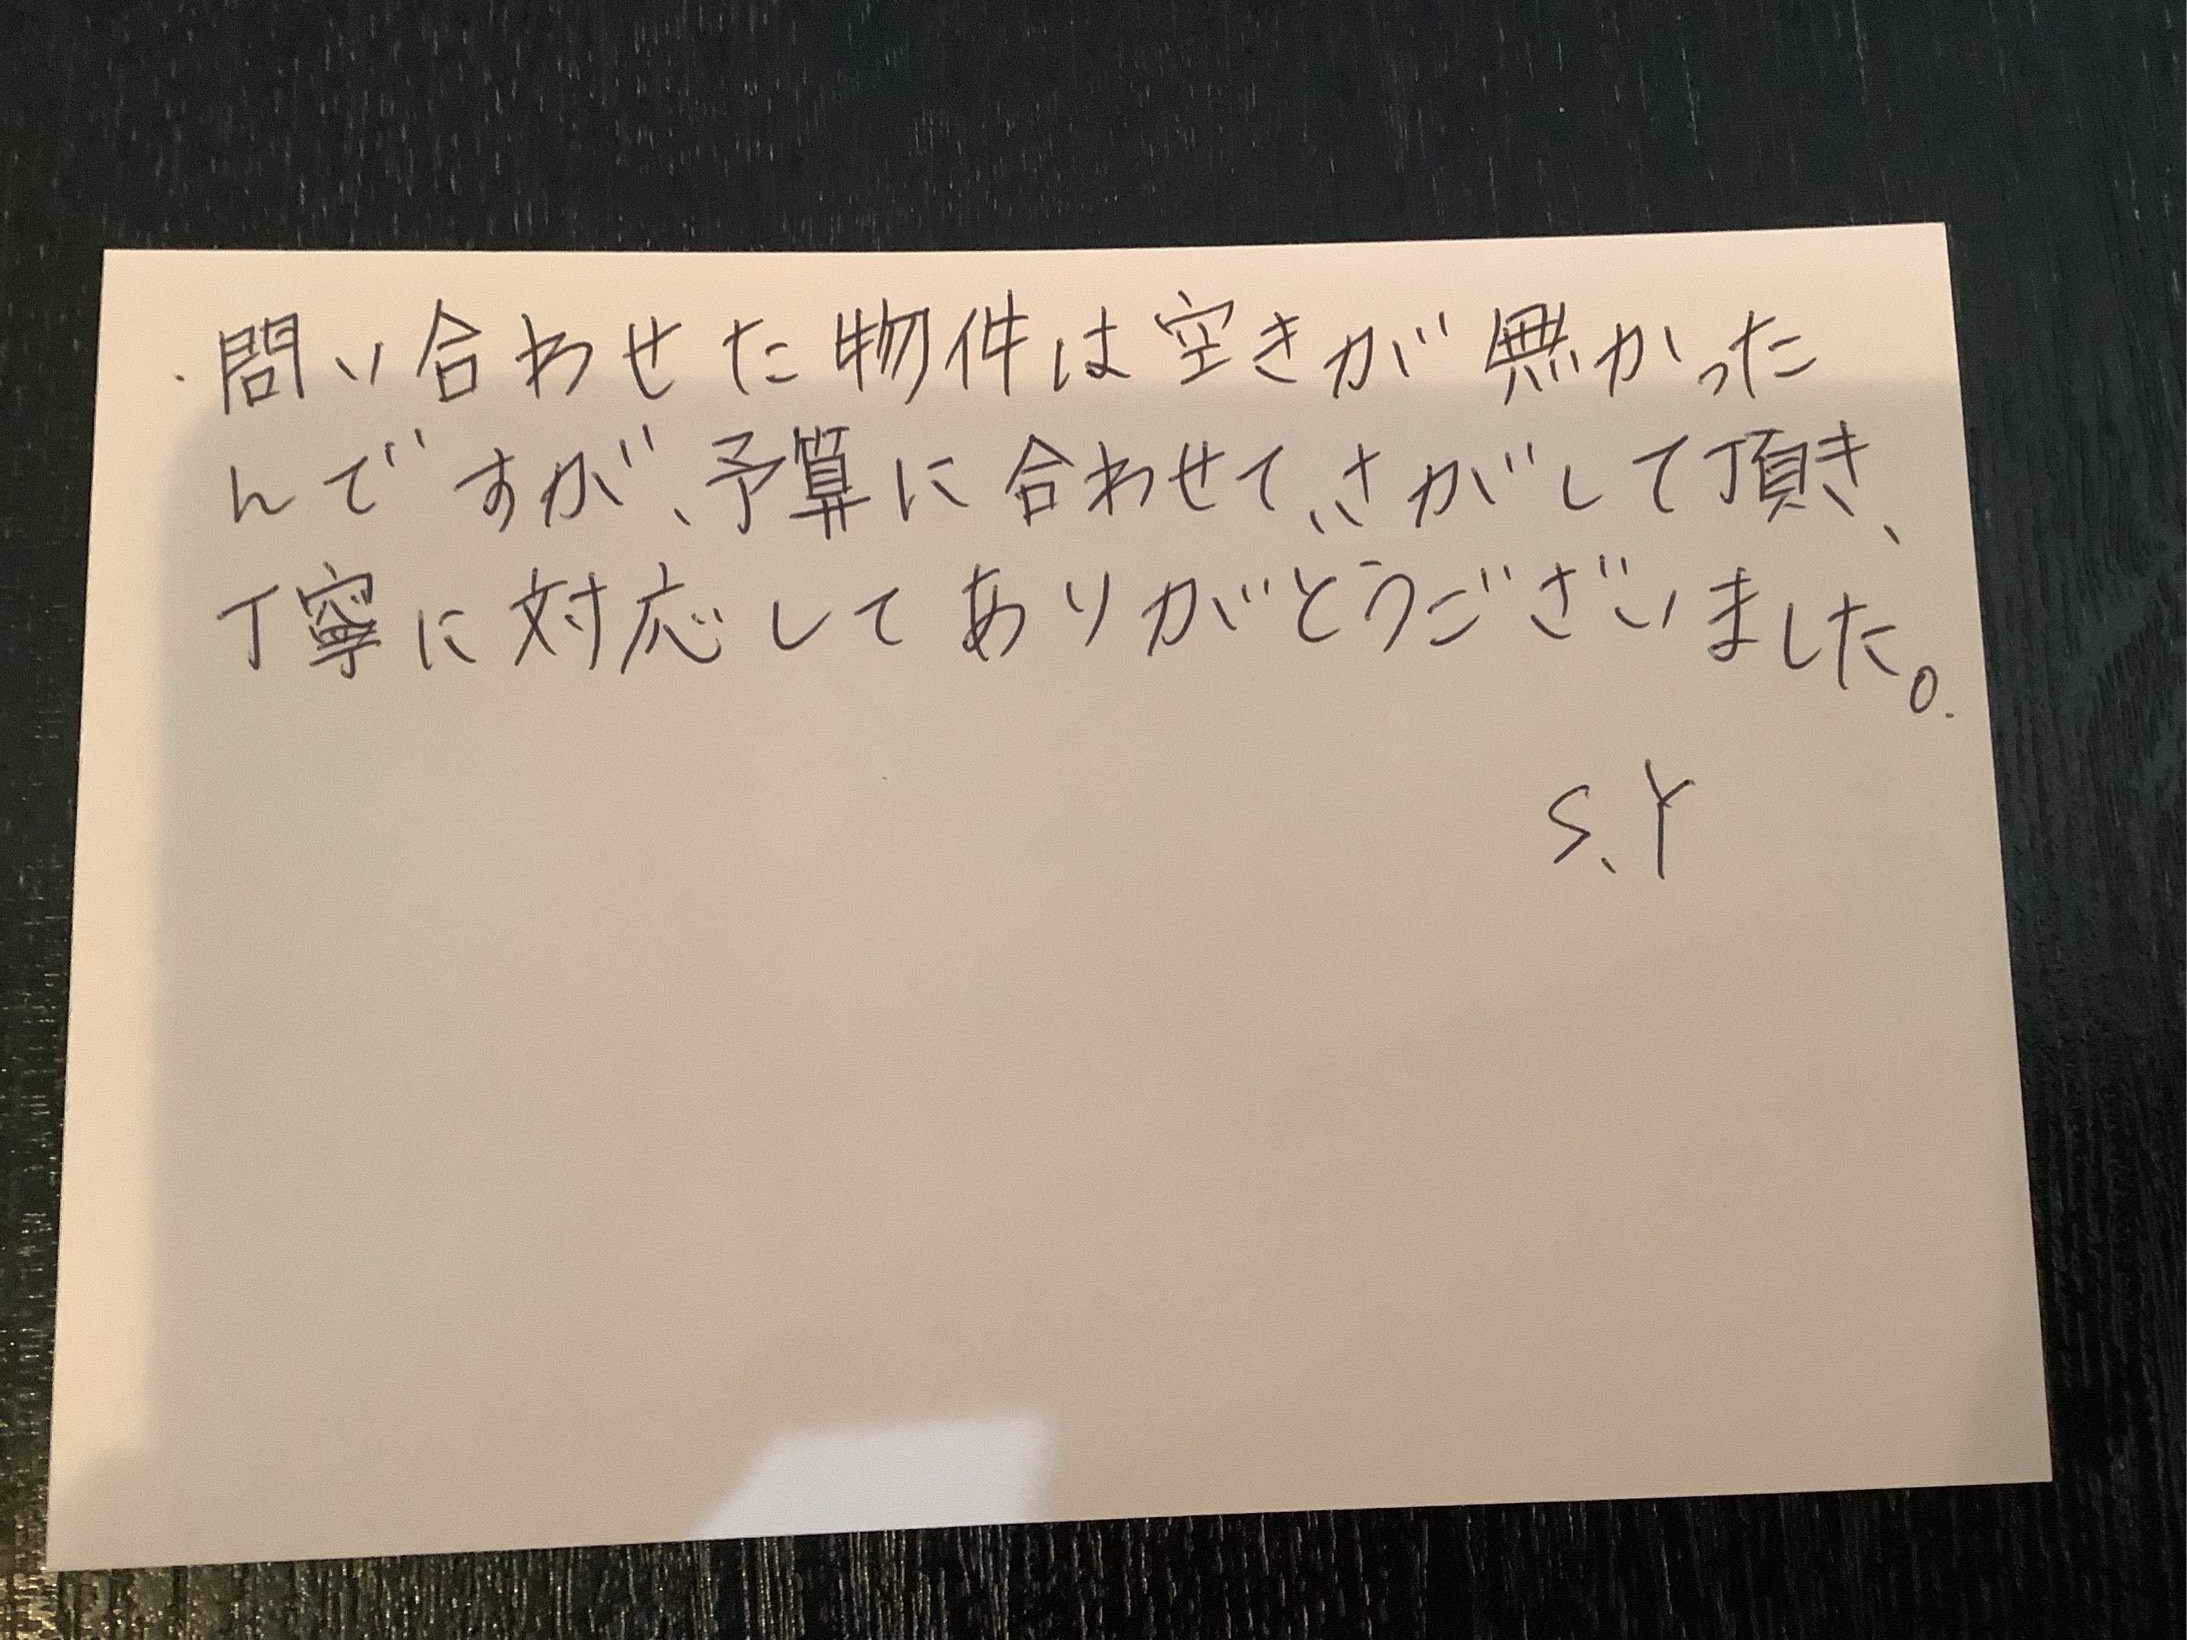 ・問い合わせた物件は空きが無かった
んですが、予算に合わせて、さがして頂き、
丁寧に対応してありがとうございました。
S.Y